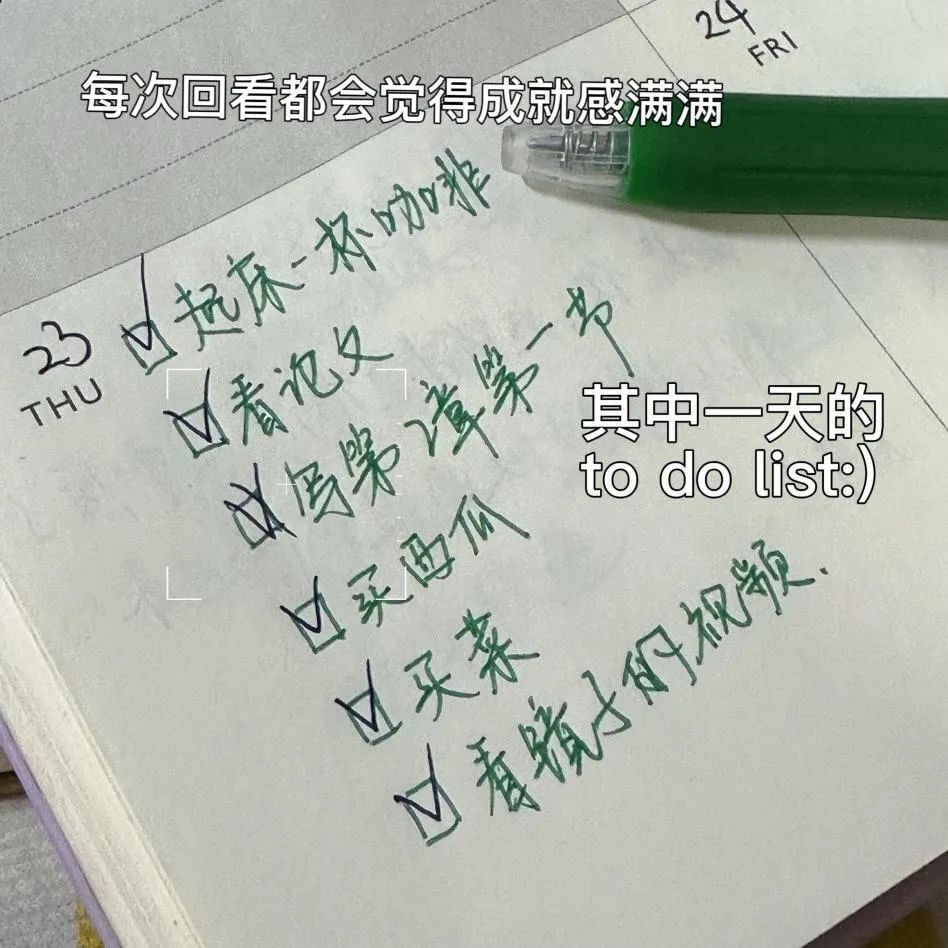 24
FRI
每次回看都会觉得成就感满满
23
THU
起床一杯咖啡
看论文
写第2章第一节
其中一天的
to do list:)
买西瓜
买菜
看镜子的视频.